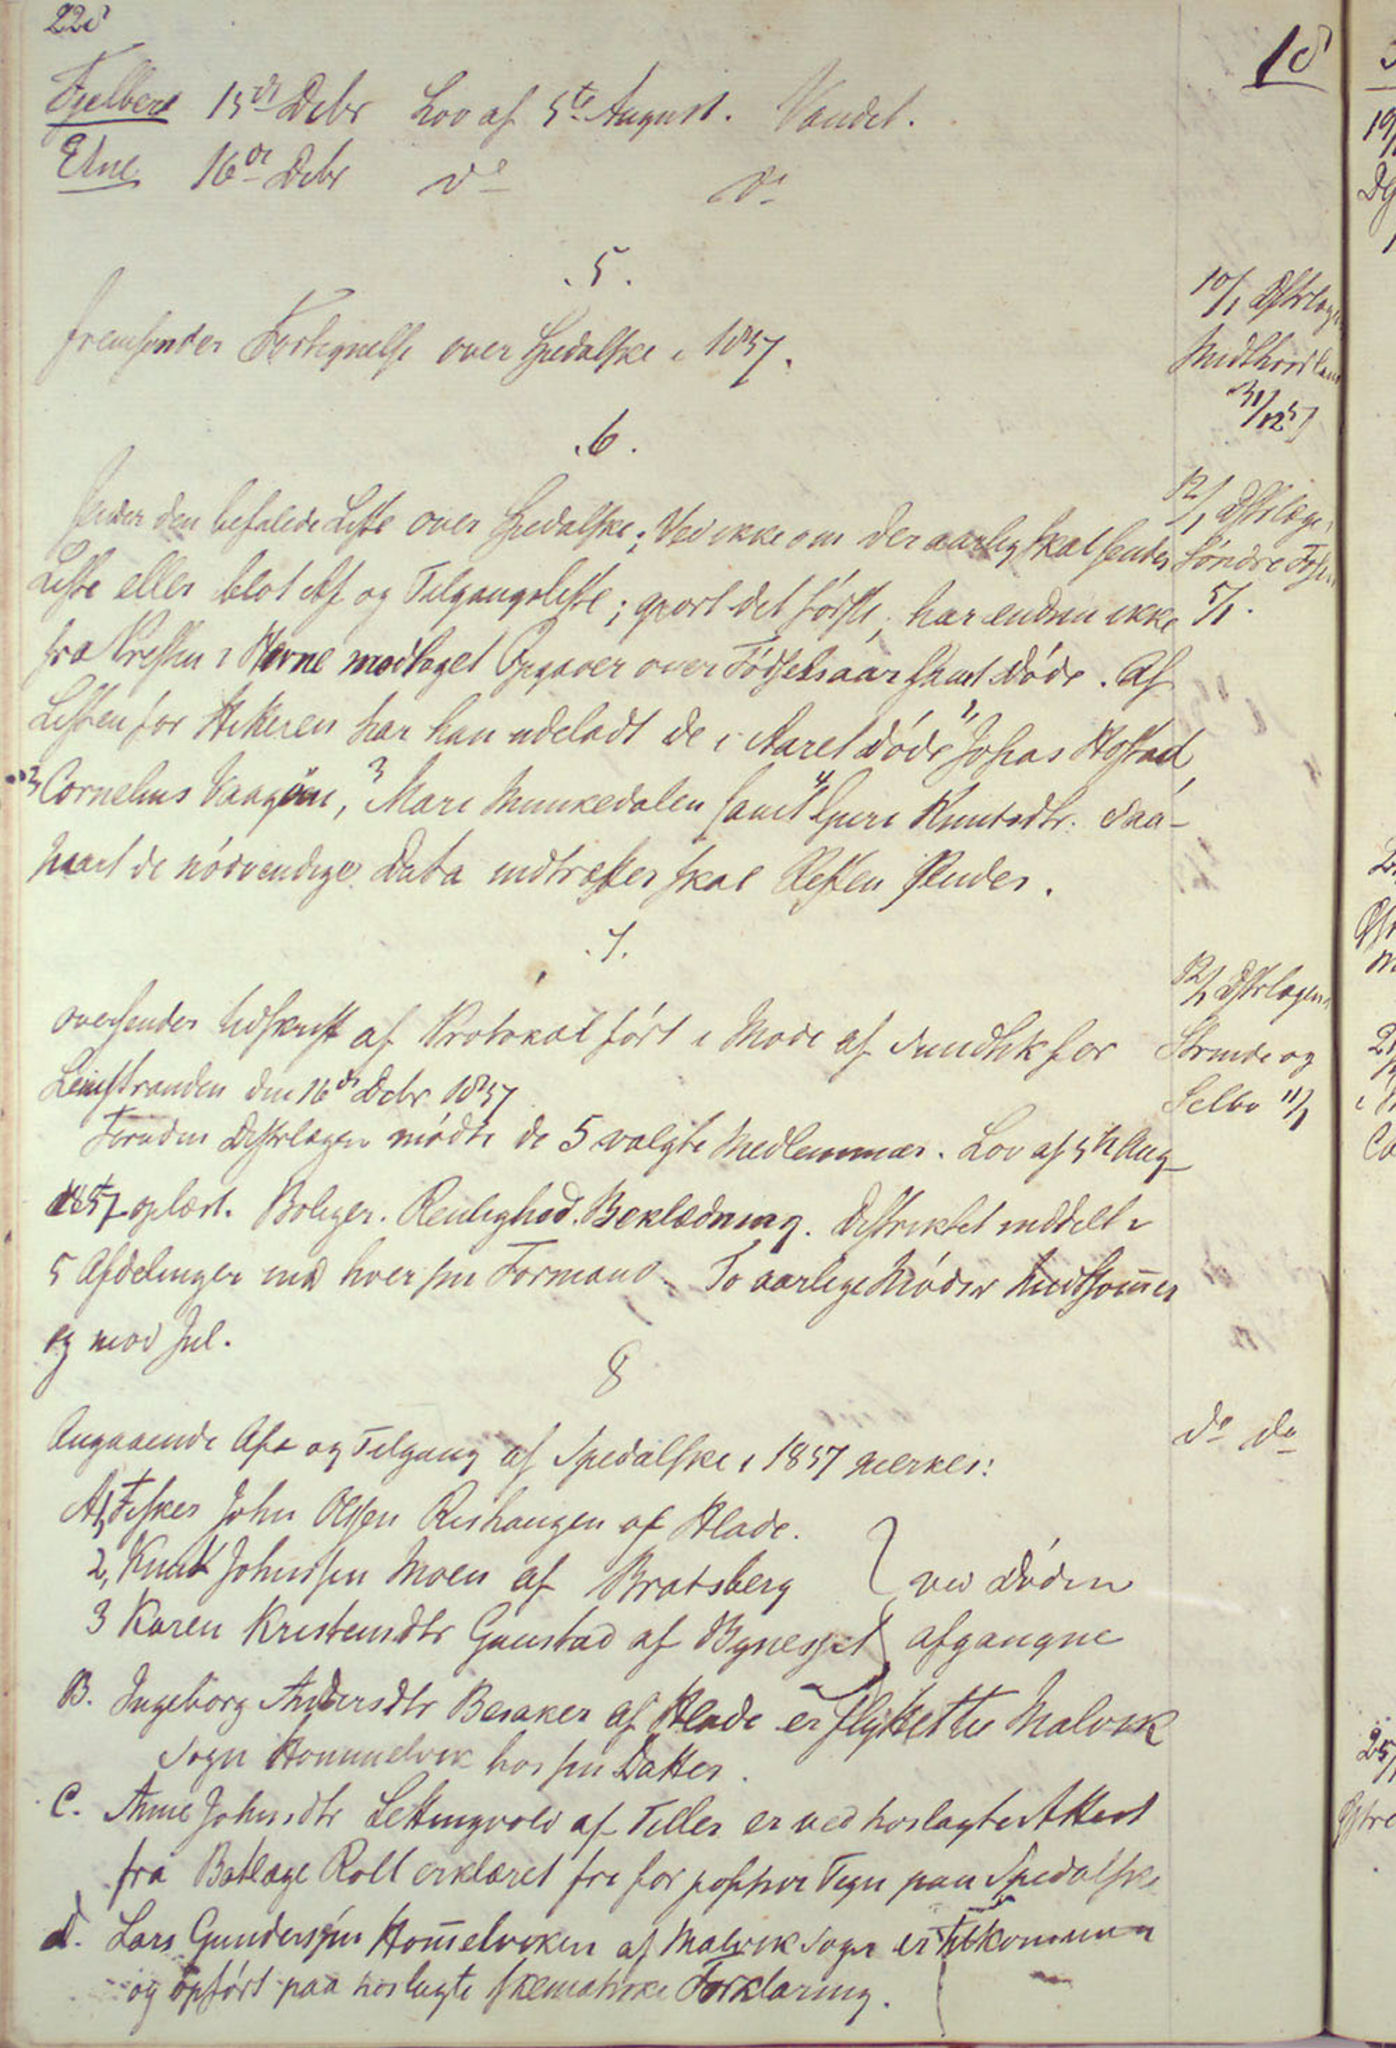 228
18
Fjelberg 15de Debr Lov af 5te August. Vandel.
Etne 16de Debr do do
.5.
fremsender Fortegnelse over Spedalske i 1857.
10/1 Distrlæge
Midthordland
31/12 57
.6.
sender den befalede Liste over Spedalske; Ved ikke om der aarlig skal sendes
Liste eller blot Af og Tilgangsliste; gjort det første, har endnu ikke
fra Presten i Hevne modtaget Opgaver over Fødselsaar samt Døde. Af
Listen for Hitteren har han udeladt de i Aaret døde 1, Johas Hestad,
2 Cornelius Vaagøen, 3 Mari Munkedalen samt 4 Guri Knutsdtr. Saa-
snart de nødvendige Data indtræffer skal Resten sendes.
12/1 Distrlæge
Søndre Fosen
5/1.
.7.
oversender Udskrift af Protokol ført i Møde af Sundhk for
Leinstranden den 16de Debr 1857
Foruden Distrlægen mødte de 5 valgte Medlemmer. Lov af 5te Aug
1857 oplæst. Boliger. Renlighed. Beklædning. Distriktet inddelt i
5 Afdelinger med hver sin Formand. To aarlige Møder Midtsommer
og mod Jul.
12/1 Distrlægen
Strinde og
Selbo 11/1
8
Angaaende Af- og Tilgang af Spedalske i 1857 mærkes:
do do
A 1, Fisker John Olsen Rishaugen af Hlade.
2, Knut Johnsen Moen af Bratsberg
3 Karen Kristensdtr Gaustad af Bynesset
ved Døden
afgangne
B. Ingeborg Andersdtr Besaker af Hlade er flyttet til Malvik
Sogn Hommelvik hos sin Datter.
C. Anne Johnsdtr Lettingvold af Tiller er ved hoslagte Attest
fra Batlæge Roll erklæret fri for positive Tegn paa Spedalske
d. Lars Gundersen Hommelviken af Malvik Sogn er tilkommen
og opført paa hoslagte skematiske Forklaring.